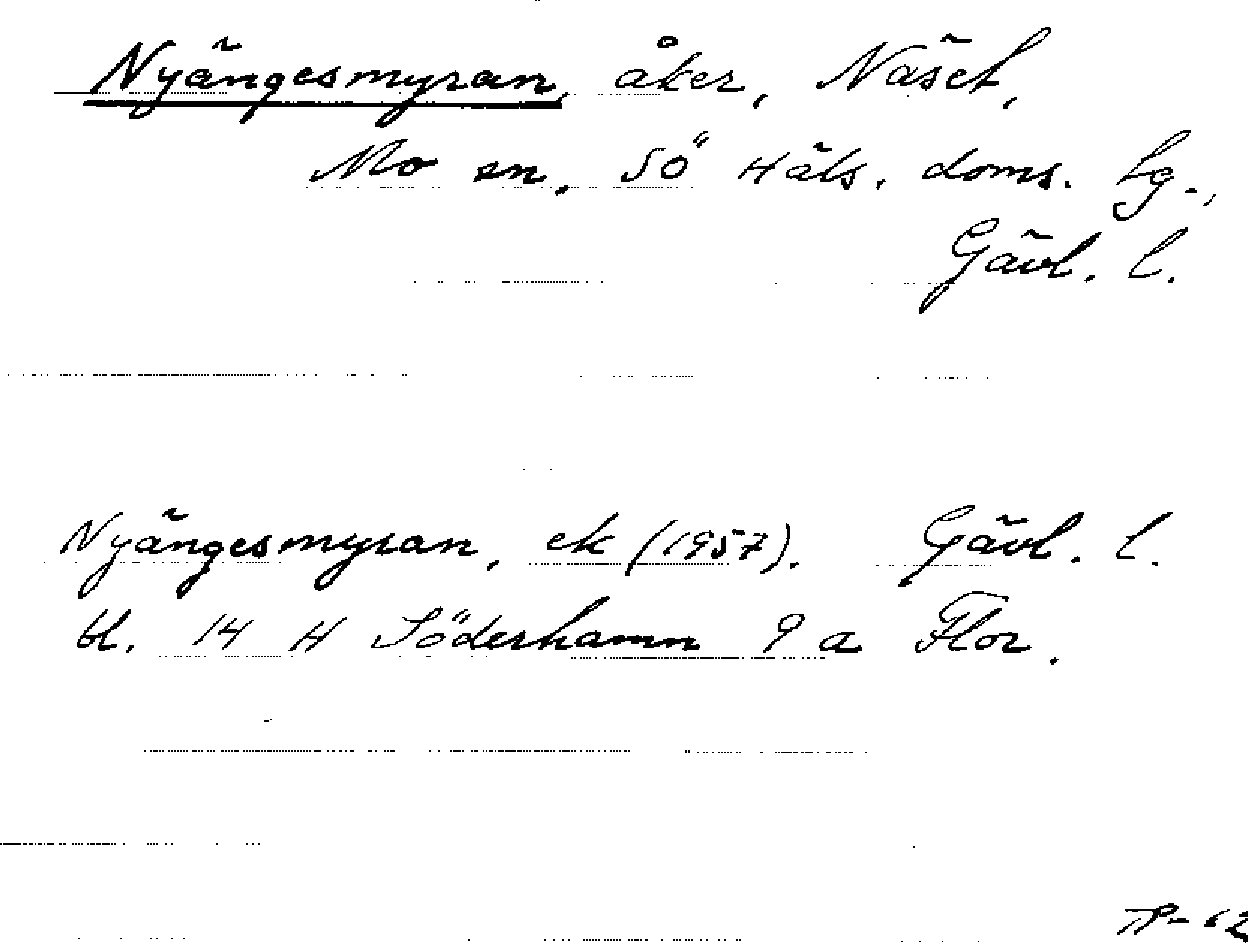 Nyängesmyran, åker, Näset,
Mo sn, Sö Häls. doms. hg.,
Gävl. l.
Nyängesmyran, ek (1957). Gävl. l.
bl. 14 H Söderhamn 9 a Flor.
TP-62